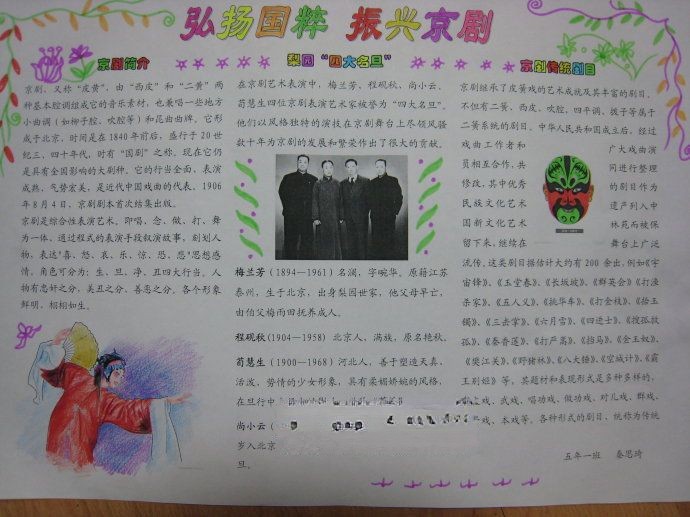 弘扬国粹 振兴京剧
京剧简介
京剧，又称“皮黄”，由“西皮”和“二黄”两
种基本腔调组成它的音乐素材，也兼唱一些地方
小曲调（如柳子腔、吹腔等）和昆曲曲牌。它形
成于北京，时间是在1840年前后，盛行于20世
纪三、四十年代，时有“国剧”之称。现在它仍
是具有全国影响的大剧种。它的行当全面、表演
成熟、气势宏美，是近代中国戏曲的代表。1906
年8月4日，京剧剧本首次结集出版。
京剧是综合性表演艺术。即唱、念、做、打、舞
为一体、通过程式的表演手段叙演故事，刻划人
物，表达“喜、怒、哀、乐、惊、恐、悲”思想感
情。角色可分为：生、旦、净、丑四大行当。人
物有忠奸之分，美丑之分、善恶之分。各个形象
鲜明、栩栩如生。
梨园“四大名旦”
在京剧艺术表演中，梅兰芳、程砚秋、尚小云、
荀慧生四位京剧表演艺术家被誉为“四大名旦”。
他们以风格独特的演技在京剧舞台上尽领风骚
数十年为京剧的发展和繁荣作出了很大的贡献。
梅兰芳（1894—1961）名澜，字畹华，原籍江苏
泰州，生于北京，出身梨园世家，他父母早亡，
由伯父梅雨田抚养成人。
程砚秋(1904—1958) 北京人，满族，原名艳秋。
荀慧生（1900—1968）河北人，善于塑造天真、
活泼、势情的少女形象，具有柔媚娇婉的风格，
在旦行中
尚小云（
岁入北京
旦。
京剧传统剧目
京剧继承了皮黄戏的艺术成就及其丰富的剧目。
不但有二簧、西皮、吹腔、四平调、拨子等属于
二簧系统的剧目。中华人民共和国成立后，经过
戏曲工作者和 广大戏曲演
员相互合作，共 同进行整理
修改，其中优秀 的剧目作为
民族文化艺术 遗产列入中
国新文化艺术 林苑而被保
留下来，继续在 舞台上广泛
流传，这类剧目据估计大约有200余出，例如《宇
宙锋》、《玉堂春》、《长坂坡》、《群英会》《打渔
杀家》、《五人义》、《挑华车》、《打金枝》、《拾玉
镯》、《三击掌》、《六月雪》、《四进士》、《搜孤救
孤》、《秦香莲》、《打严嵩》、《挡马》、《金玉奴》、
《樊江关》、《野猪林》、《八大锤》、《空城计》、《霸
王别姬》等，其题材和表现形式是多种多样的，
戏、武戏、唱功戏、做功戏、对儿戏、群戏、
戏、本戏等，各种形式的剧目，统称为传统
五年一班 秦思琦